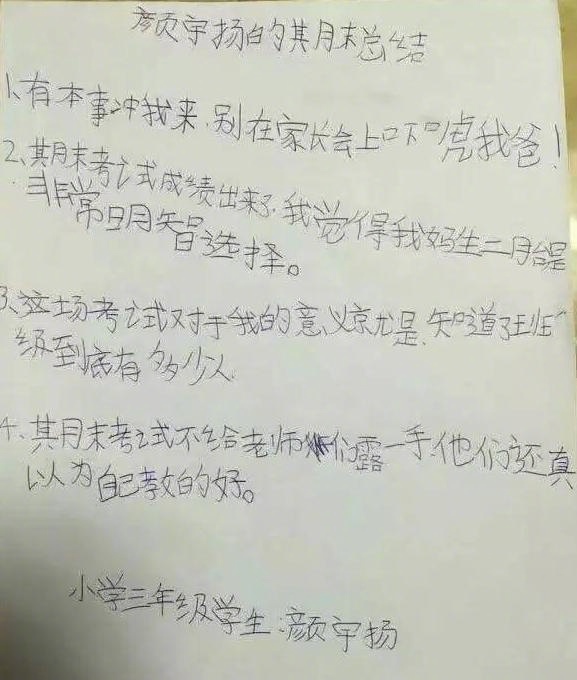 颜宇扬的其月末总结
1、有本事冲我来,别在家长会上吓唬我爸!
2、其月末考试成绩出来了,我觉得我妈生二月台是
非常明智选择。
3、这场考试对于我的意义京尤是,知道了班
级到底有多少人
4、其月末考试不给老师们露一手,他们还真
以为自己教的好。
小学三年级学生:颜宇扬